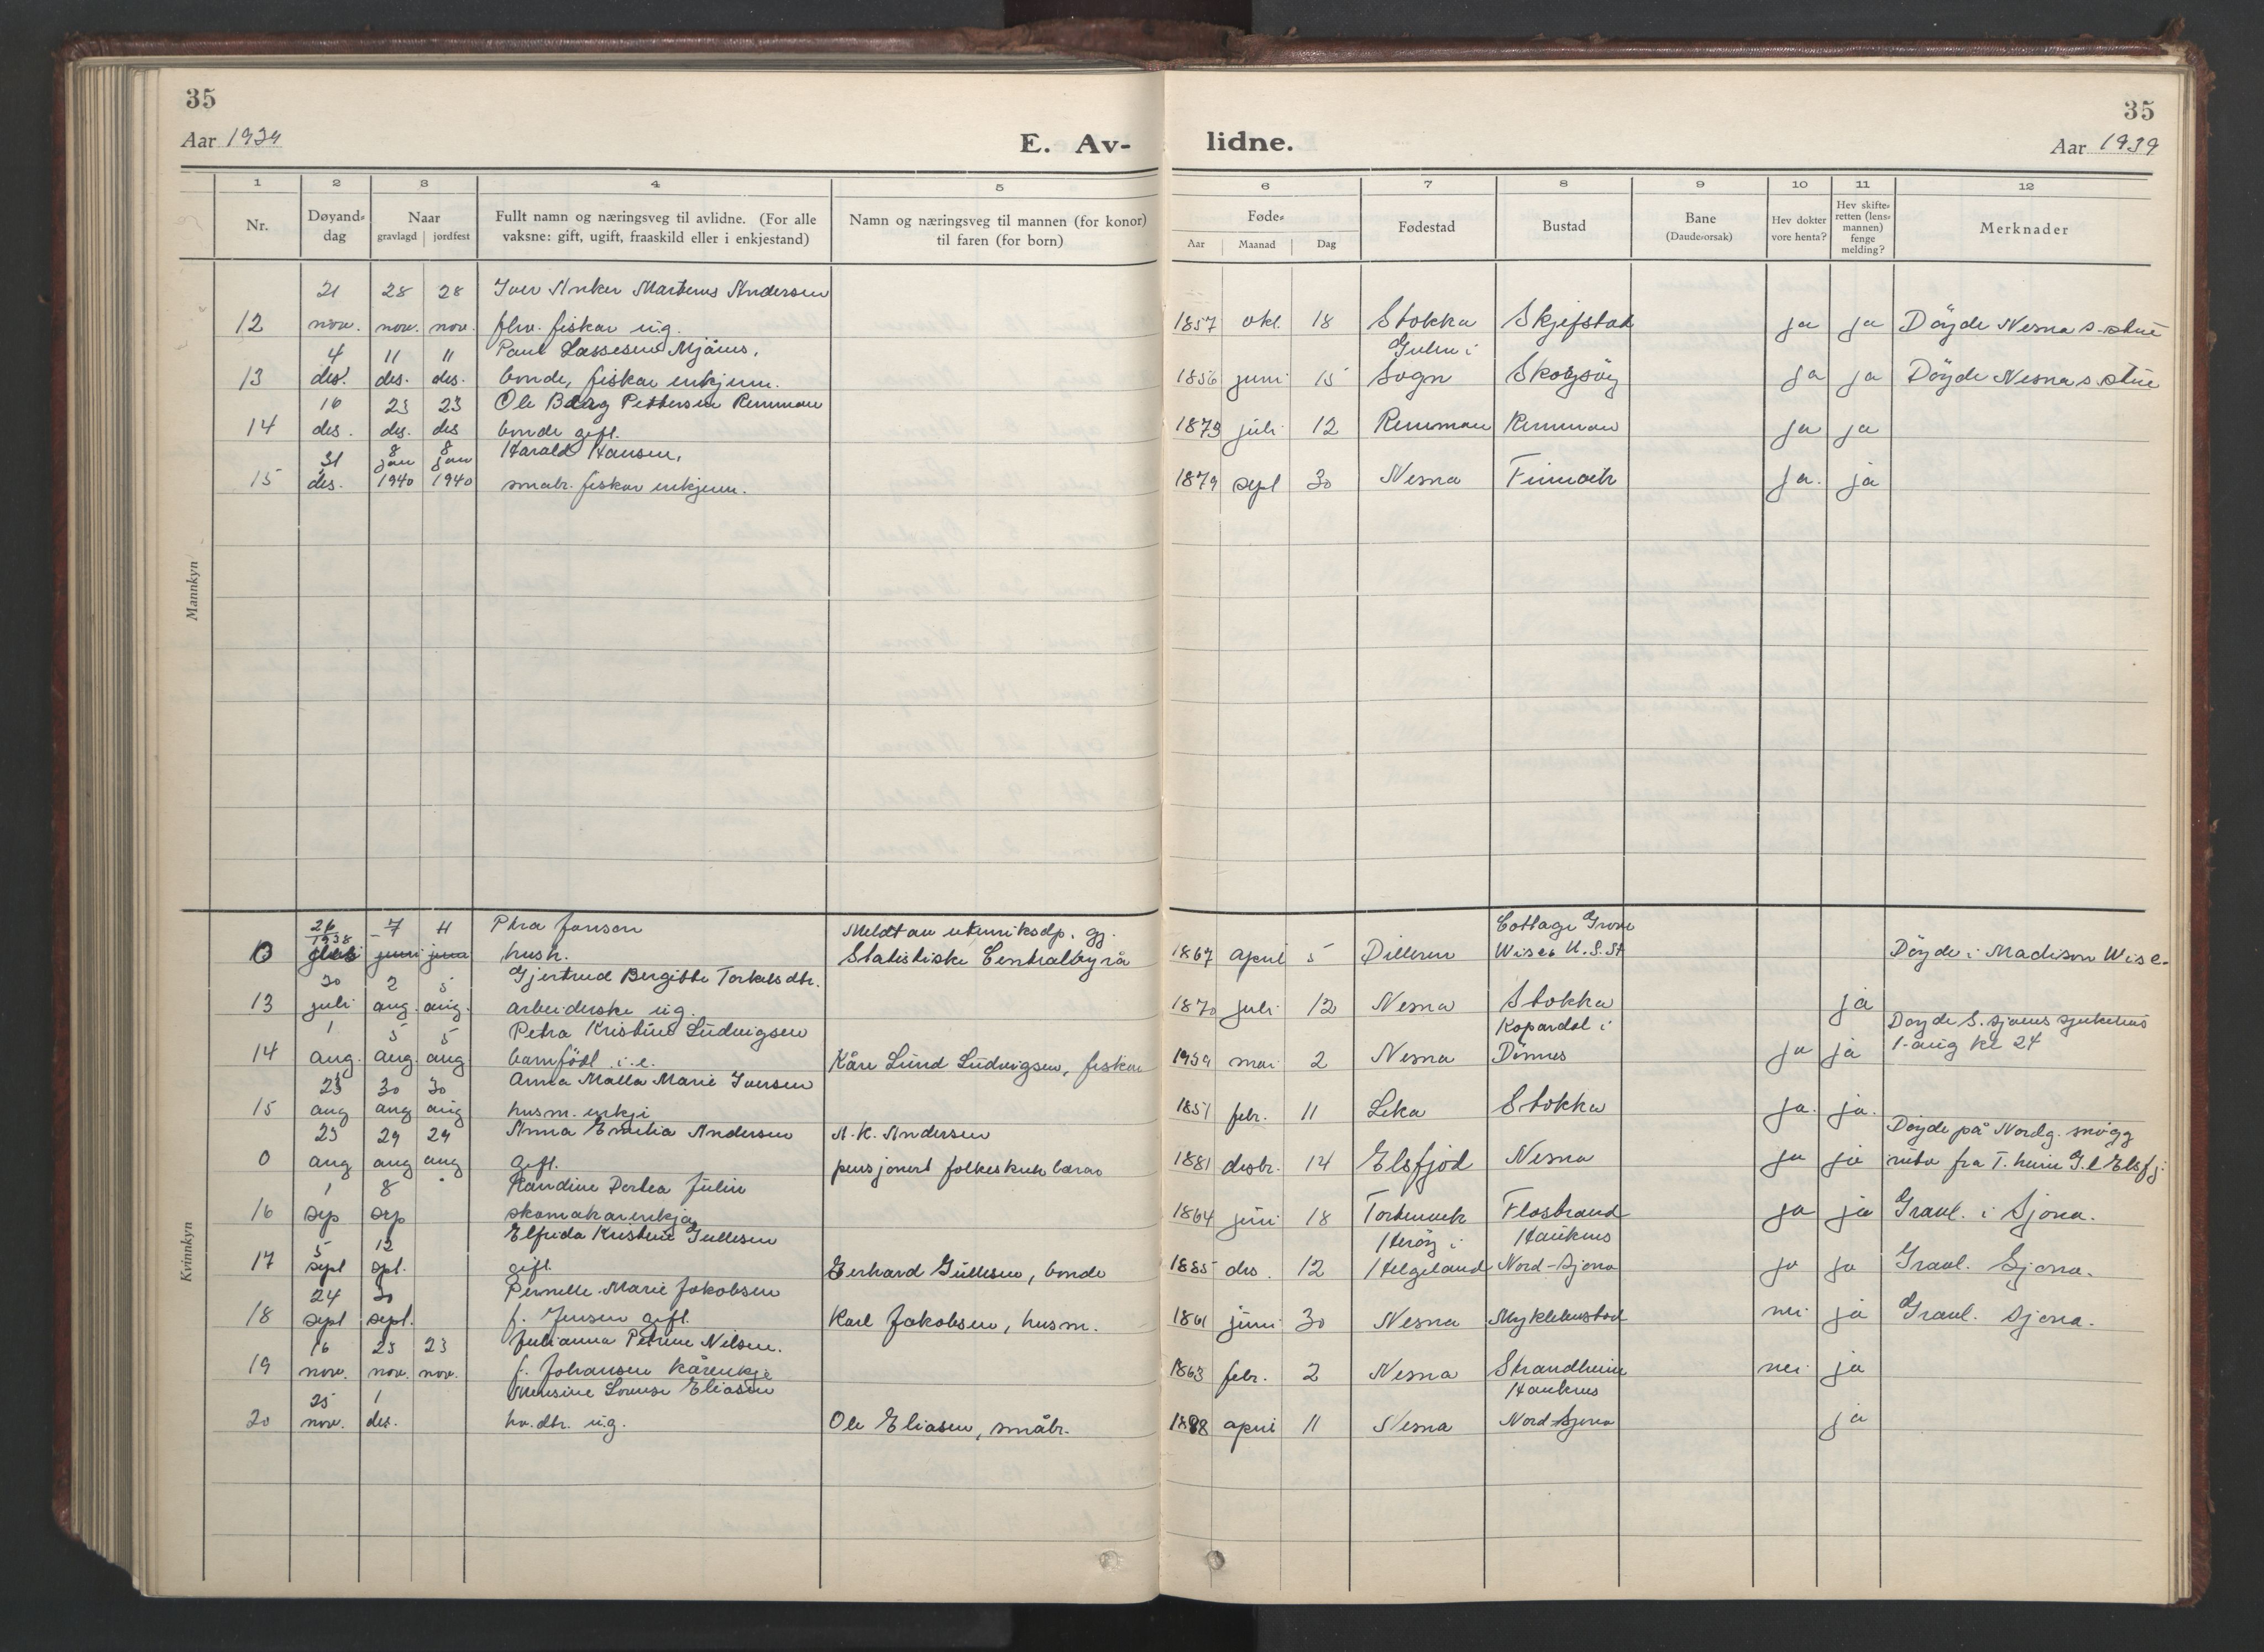 35
Aar 1939
E. Av-
1 2 3 4 5
Nr. Døyand-dag Naar gravlagd jordfest Fullt namn og næringsveg til avlidne. (For alle vaksne: gift, ugift, fraaskild eller i enkjestand) Namn og næringsveg til mannen (for konor) til faren (for born)
Mannkyn
21 28 28 Iver Anker Martinus Andersen
12 nov. nov. nov. fhv. fiskar ug.
4 11 11 Paul Lassesen Mjånes,
13 des. des. des. bonde, fiskar enkjem.
16 23 23 Ole Berg Pettersen Remman
14 des. des. des bonde gift.
31 8 jan 8 jan Harald Hansen,
15 des. 1940 1940 småbr. fiskar enkjem.
Kvinnkyn
26 1938 7 11 Petra Jonson Meldt av utanriksdp. gj.
0 juni juni hush. Statistiske Centralbyrå
30 2 5 Gjertrud Bergitte Torkelsdtr.
13 juli aug. aug. arbeiderske ug.
1 5 5 Petra Kristine Ludvigsen
14 aug. aug. aug barnfödt i. e. Kåre Lund Ludvigsen, fiskar
23 30 30 Anna Malla Marie Iversen
15 aug aug aug husm. enkje
23 29 29 Anna Emilia Andersen A. K. Andersen
0 aug aug aug gift. pensjonert folkeskulelærar
1 8 Randine Dortea Julin
16 sep sep skomakarenkja
5 12 Elfrida Kristine Gullesen
17 sept spt. gift Gerhard Gullesen, bonde
24 30 Pernelle Marie Jakobsen
18 sept sept. f. Jensen gift. Karl Jakobsen, husm.
16 23 23 Julianna Petrine Nilsen.
19 nov. nov. nov. f. Johansen kårenkje
25 1 Lovise Eliasen
20 nov. des. hv. dtr. ug. Ole Eliasen, småbr.
35
lidne.
Aar 1939
6 7 8 9 10 11 12
Føde- Aar Maanad Dag Fødestad Bustad Bane (Daude-orsak) Hev dokter vore henta? Hev skifte-retten (lens-mannen) fenge melding? Merknader
1857 okt. 18 Stokka Skjefstad ja ja Döyde Nesna s.stue
Gulen i
1856 juni 15 Sogn Skogsöy ja ja Döyde Nesna s.stue
1873 juli 12 Remman Remman ja ja
1879 sept 30 Nesna ja. ja
Cottage Grove
1867 april 5 Dilleren Wisc. U.S.St Döyde i Madison Wisc.
1870 juli 12 Nesna Stokka ja
Kopardal i Döyde S. sjöens sjukehus
1939 mai 2 Nesna Dönnes ja ja 1. aug kl 24
1851 febr. 11 Leka Stokka ja. ja.
Döyde på Nordg. snögg
1881 desbr. 14 Elsfjod Nesna ja ja ruta fra T.heim t.l Elsfj.
1864 juni 18 Torbenvik Flostrand ja ja Gravl. i Sjona.
Heröy i Hauknes
1885 des. 12 Helgeland Nord-Sjona ja ja Gravl. Sjona.
1861 juni 30 Nesna Myklebustad nei ja Gravl. Sjona.
1863 febr. 2 Nesna Strandheim nei ja
Hauknes
1888 april 11 Nesna Nord-Sjona ja